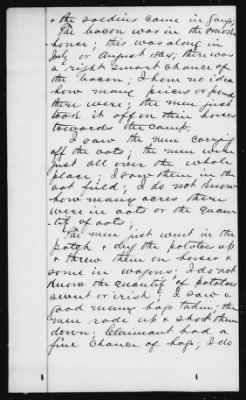 & the soldiers came in Camp,
The bacon was in the smoke
house; this was along in
July or August 1863; there was
a right smart chance of
the bacon; I have no idea
how many pieces or pounds
there were; the men just
took it off on their horses
towards the camp.
I saw the men carrying
off the oats; the men were
just all over the whole
place; I saw them in the
oat field; I do not know
how many acres there
were in oats or the quan-
tity of oats;
The men just went in the
patch & dug the potatoes up
& threw them on horses &
some in wagons; I do not
know the quantity of potatoes
sweet or irish; I saw a
good many hogs taken; the
men rode up & shot them
down; Claimant had a
fine chance of hogs; I do